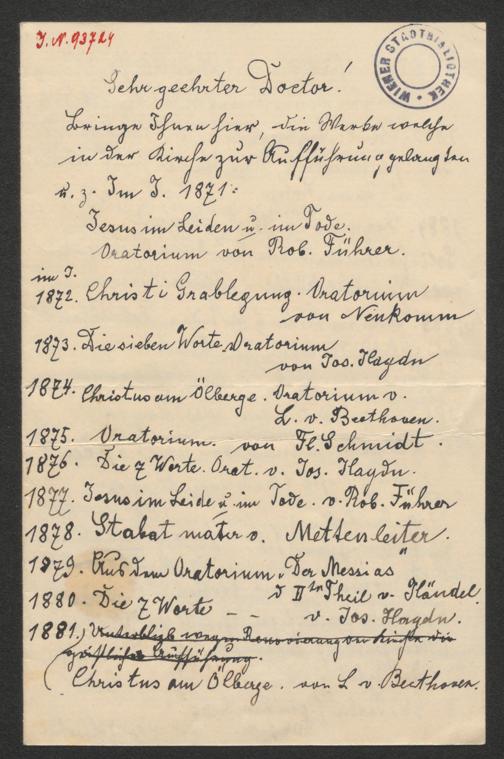 I. N. 93724
WIENER STADTBIBLIOTHEK
Sehr geehrter Doctor!
Bringe Ihnen hier, die Werke welche
in der Kirche zur Aufführung gelangten
u. z. Im J. 1871:
Jesus im Leiden u. im Tode.
Oratorium von Rob. Führer.
im J.
1872. Christi Grablegung. Oratorium
von Neukomm
1873. Die sieben Worte Oratorium
von Jos. Haydn
1874. Christus am Ölberge. Oratorium v.
L. v. Beethoven.
1875. Oratorium. von Fl. Schmidt.
1876. Die 7 Worte. Orat. v. Jos. Haydn.
1877. Jesus im Leide u. im Tode. v. Rob. Führer
1878. Stabat mater v. Mettenleiter.
1879. Aus dem Oratorium „Der Messias"
d IIten Theil v. Händel.
1880. Die 7 Worte – – v. Jos. Haydn.
1881.) Unterblieb wegen Renovierung der Kirche die
geistliche Aufführung.
(Christus am Ölberge. von L v. Beethoven.